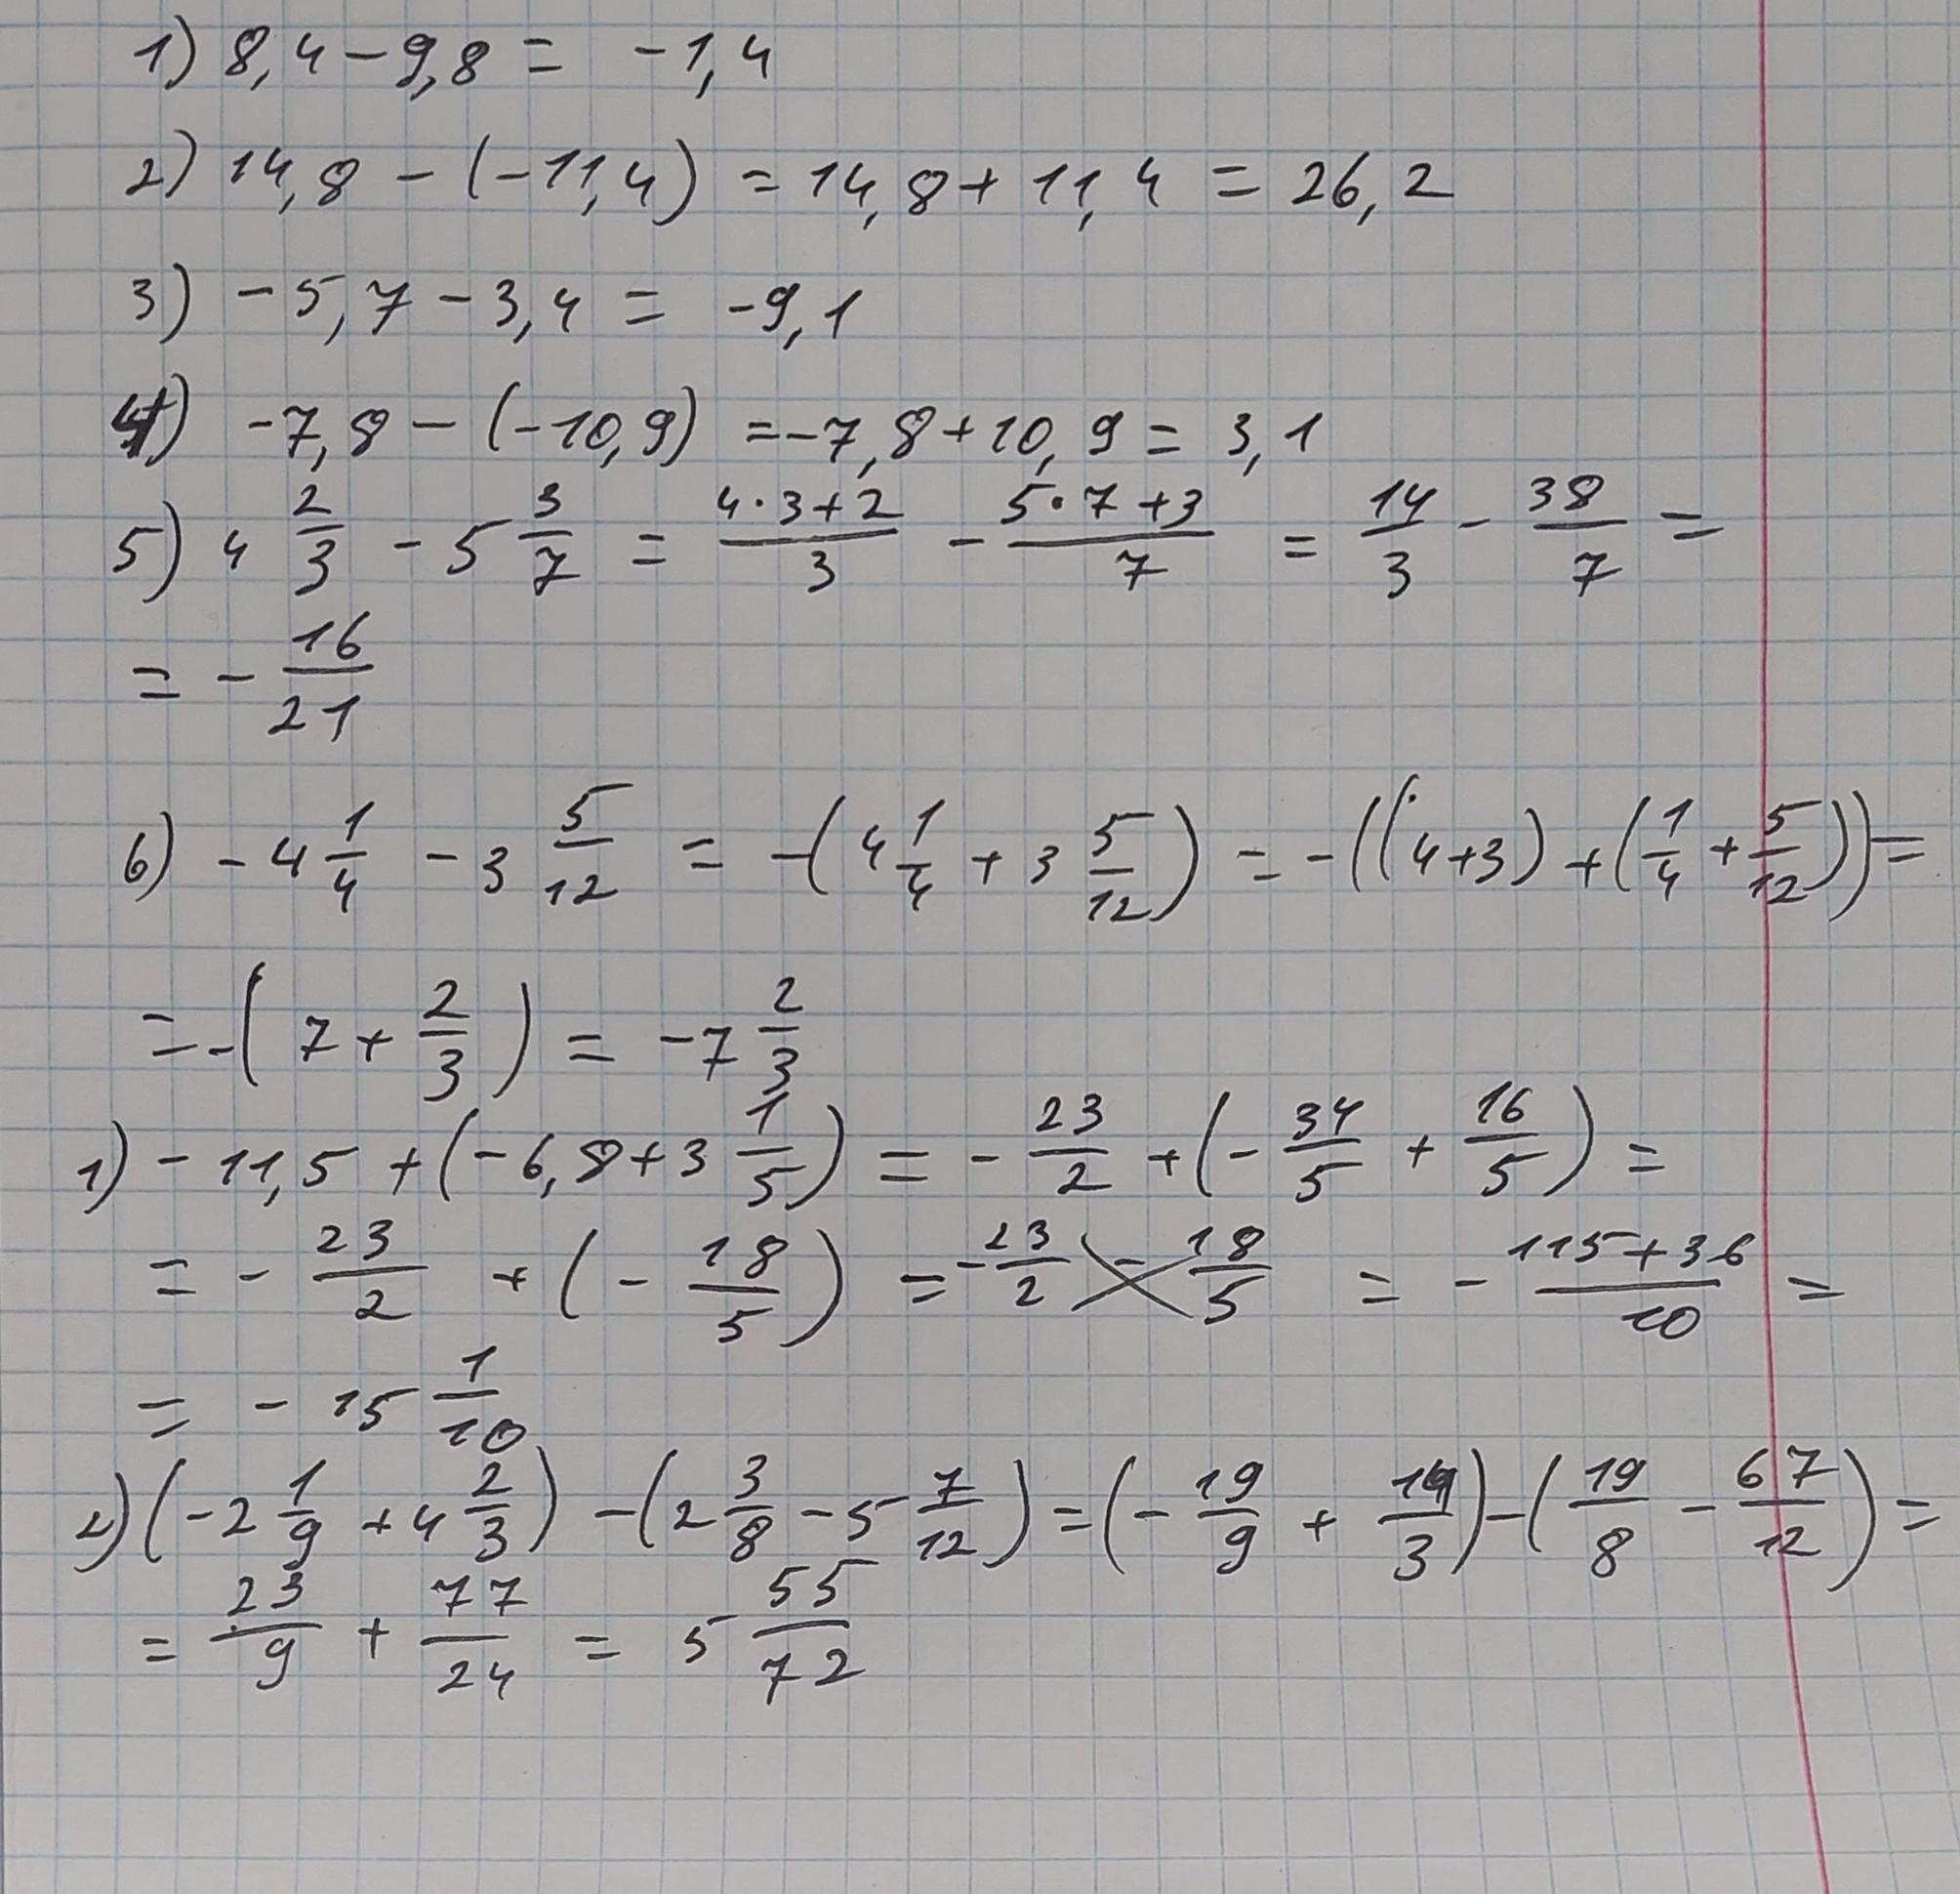 1) 8,4 - 9,8 = -1,4
2) 14,8 - (-11,4) = 14,8 + 11,4 = 26,2
3) -5,7 - 3,4 = -9,1
4) -7,8 - (-10,9) = -7,8 + 10,9 = 3,1
5) 4 2/3 - 5 3/7 = (4·3+2)/3 - (5·7+3)/7 = 14/3 - 38/7 =
= - 16/21
6) -4 1/4 - 3 5/12 = -(4 1/4 + 3 5/12) = -((4+3) + (1/4 + 5/12)) =
= -(7 + 2/3) = -7 2/3
1) -11,5 + (-6,8 + 3 1/5) = - 23/2 + (- 34/5 + 16/5) =
= - 23/2 + (- 18/5) = - 23/2 - 18/5 = - (115+36)/10 =
= - 15 1/10
2) (-2 1/9 + 4 2/3) - (2 3/8 - 5 7/12) = (- 19/9 + 14/3) - (19/8 - 67/12) =
= 23/9 + 77/24 = 5 55/72